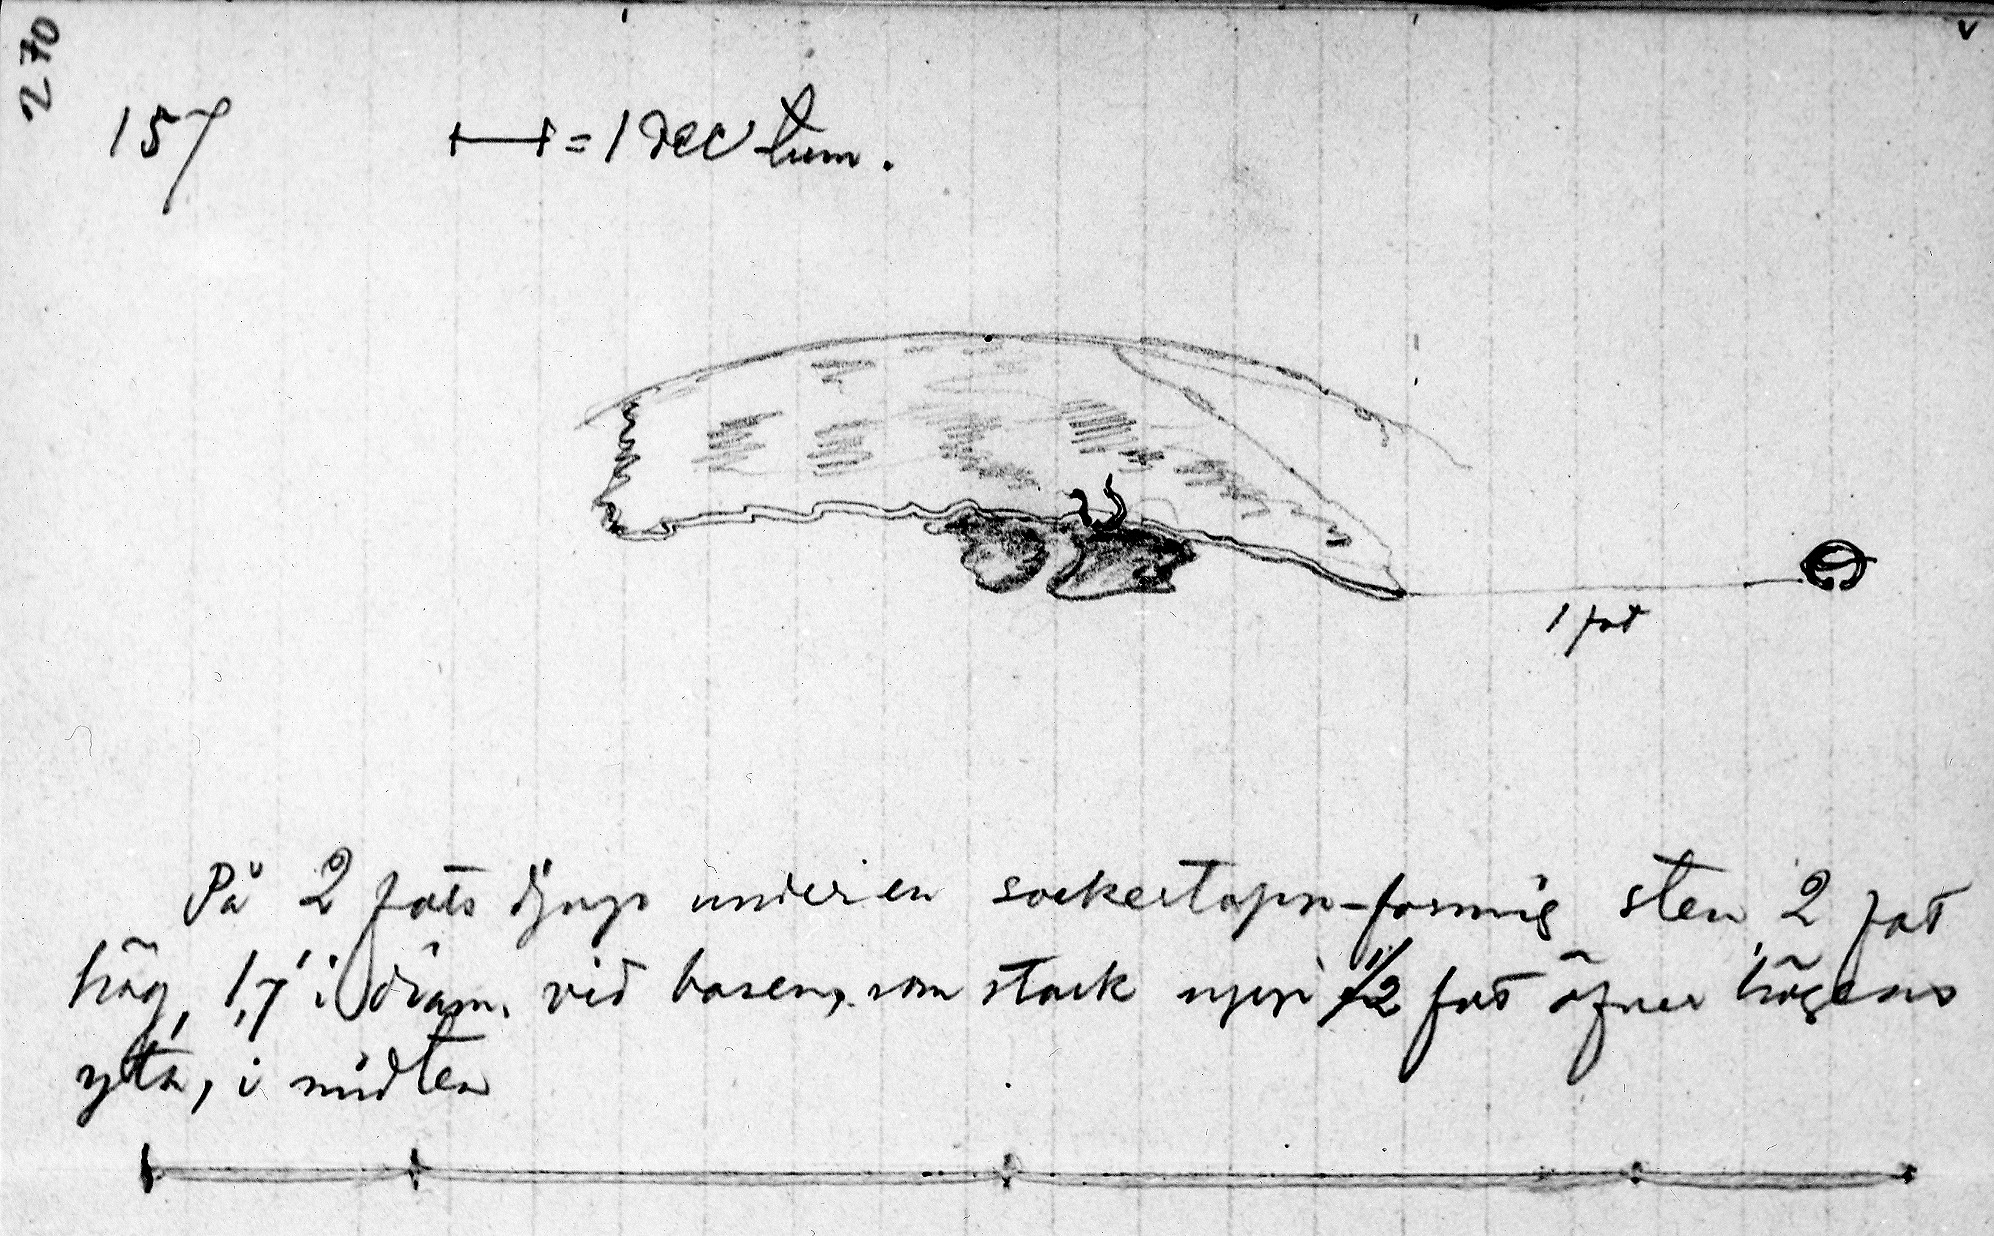 270
157
= 1 dec tum.
1 fot
På 2 fots djup under en sockertopp-formig sten 2 fot
hög, 1,7' i diam. vid basen, som stack upp 1/2 fot öfver högens
yta, i midten